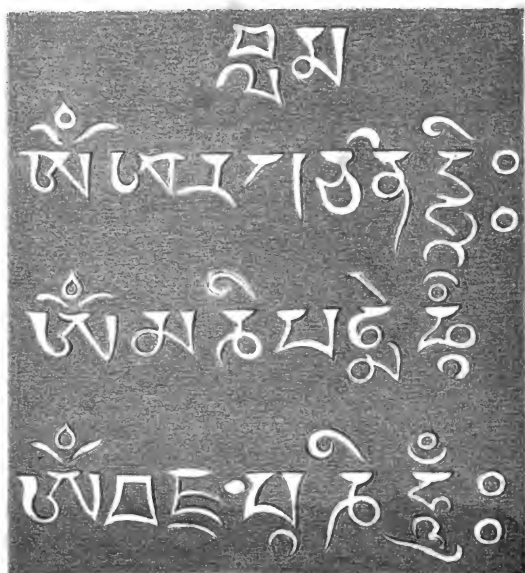 བླམ
ཨོཾཨརཔཙནདྷཱིཿ
ཨོཾམཎིཔདྨེཧཱུྃ
ཨོཾབཛྲ་པཱཎིཧཱུྃཿ